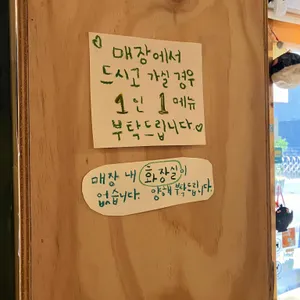 매장에서
드시고 가실 경우
1인 1메뉴
부탁드립니다.
매장 내 화장실이
없습니다. 양해 부탁드립니다